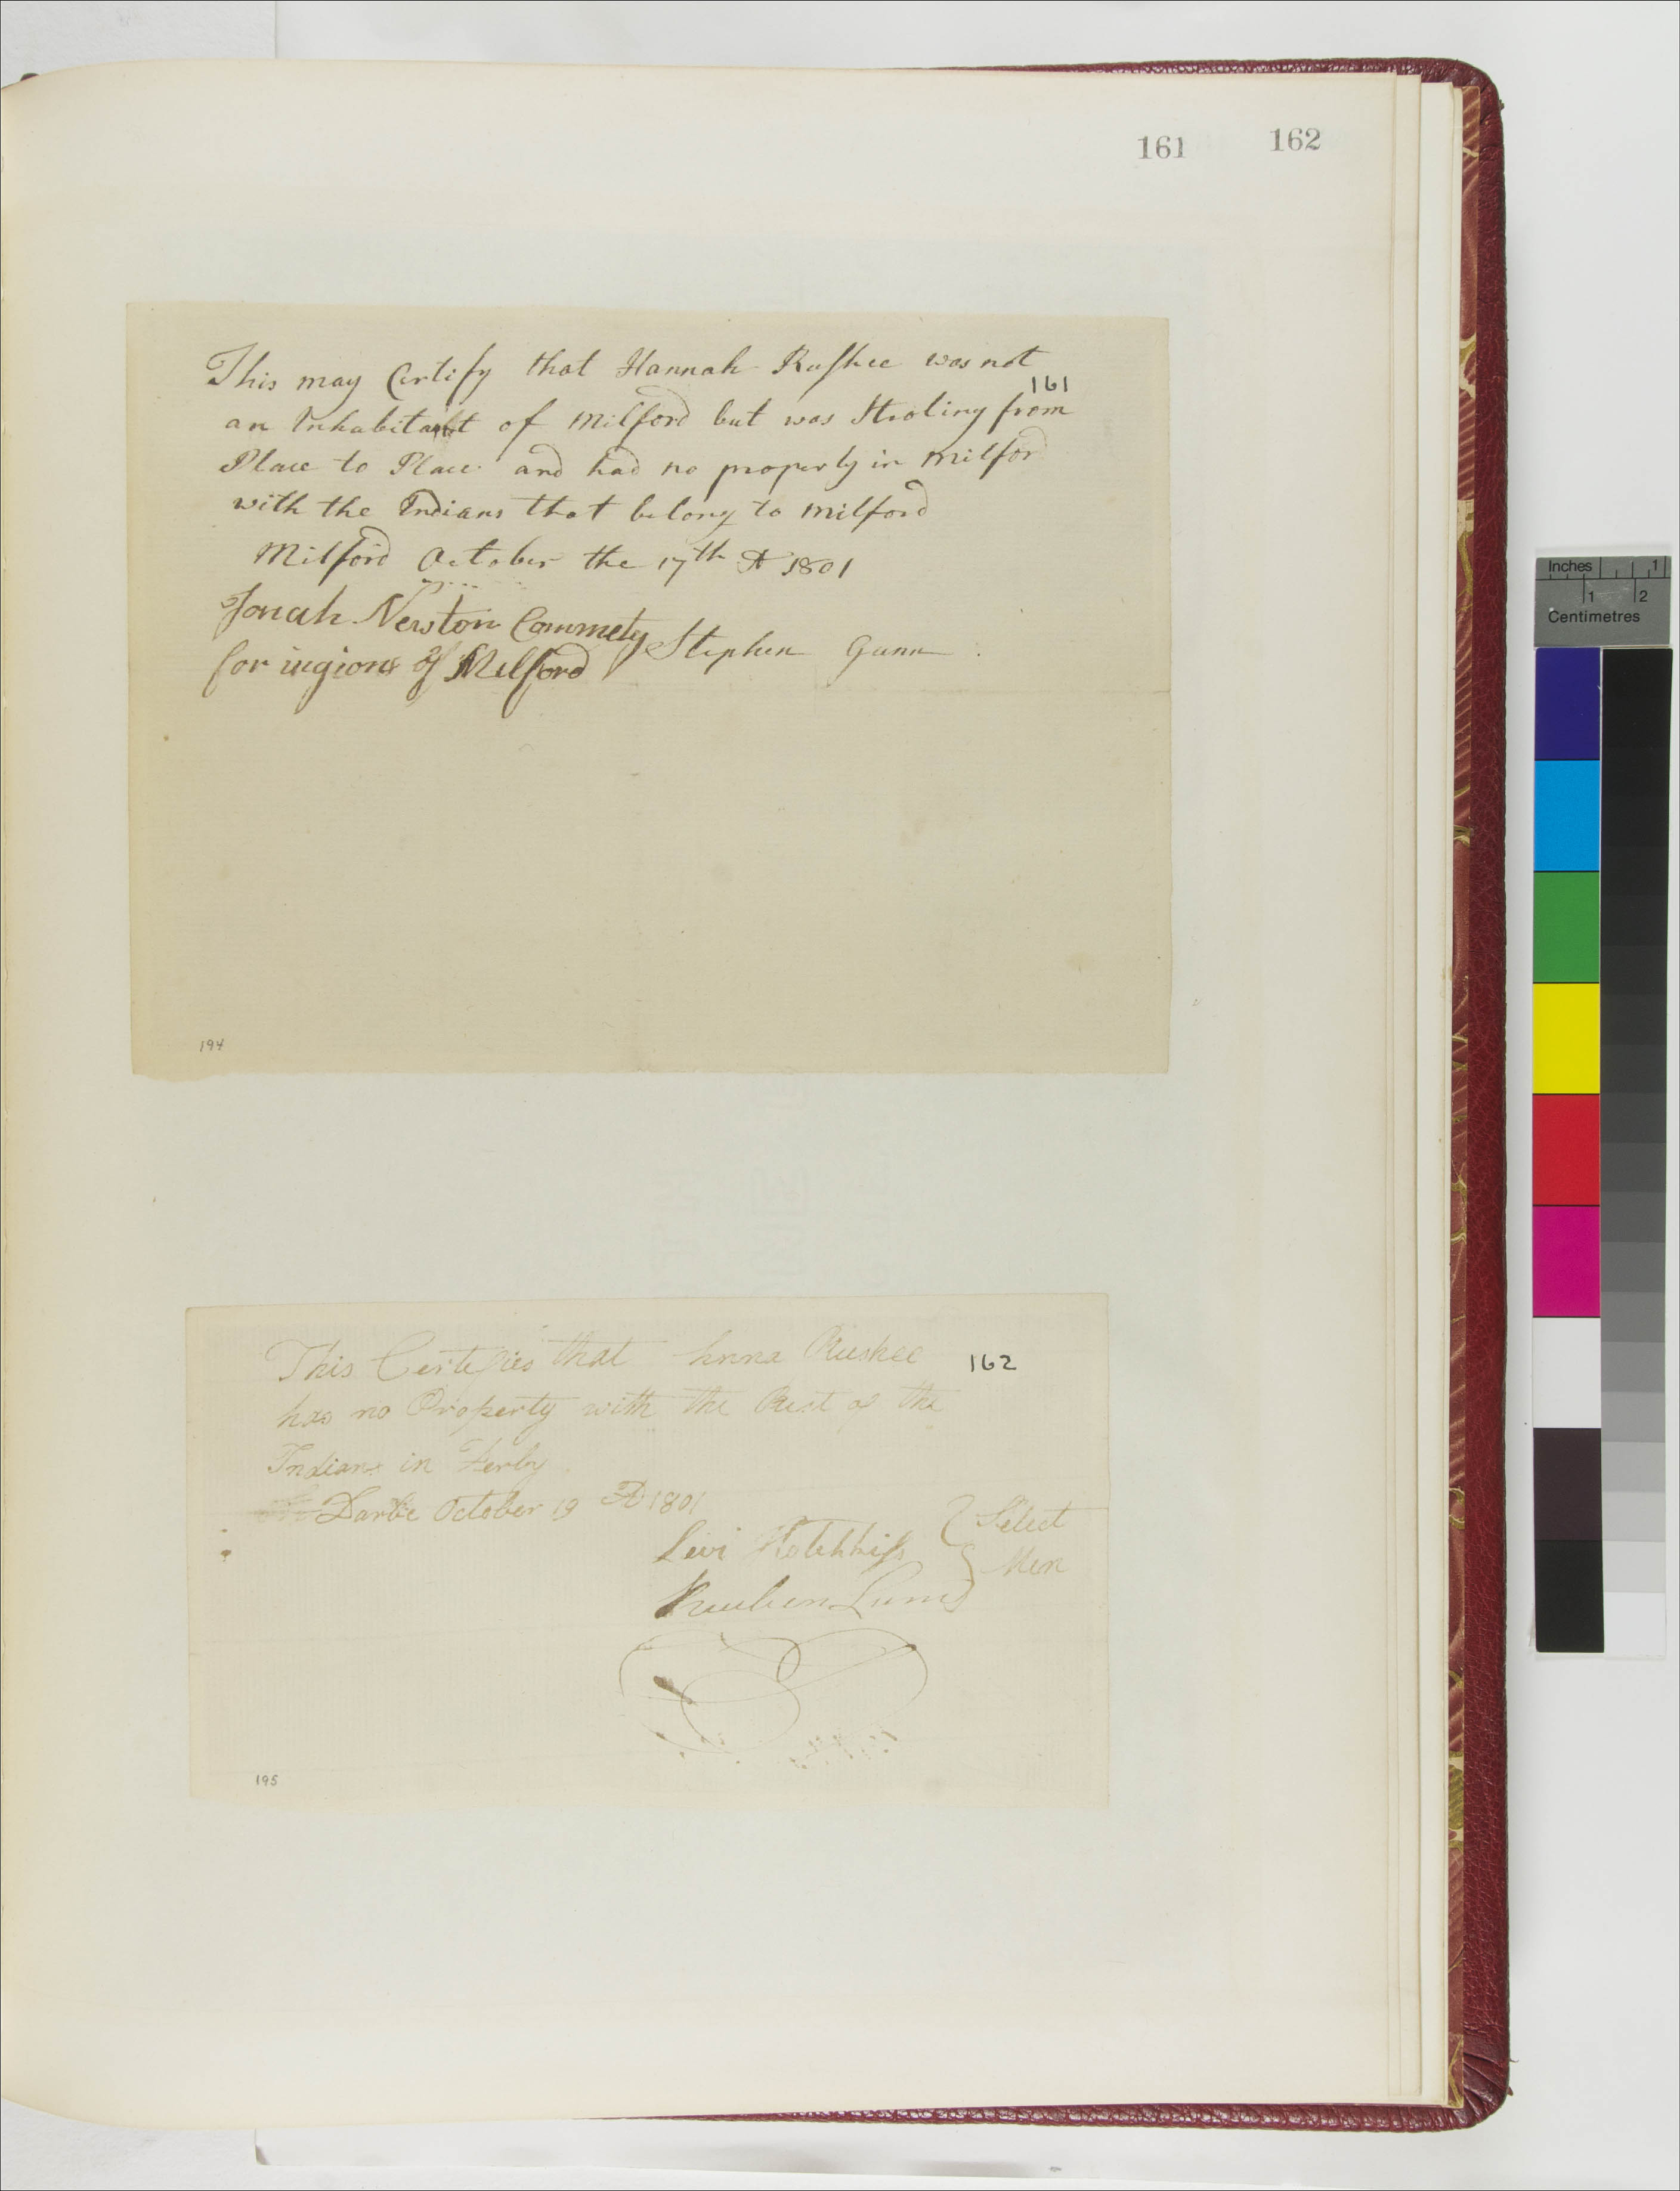 161 162
This may Certify that Hannah Ruskee was not
161
an Inhabitant of Milford but was Stroling from
Place to Place and had no property in Milford
with the Indians that belong to Milford
Milford October the 17th A 1801
Jonah Newton Commety Stephen Gunn
for ingions of Milford
194
This Certefies that hnna Ruskee 162
has no Property with the Rest of the
Indians in Derby
Darbe October 19 AD 1801
Levi Hotchkiss } Select
Reuben Lum } Men
195
Inches 1
1 2
Centimetres